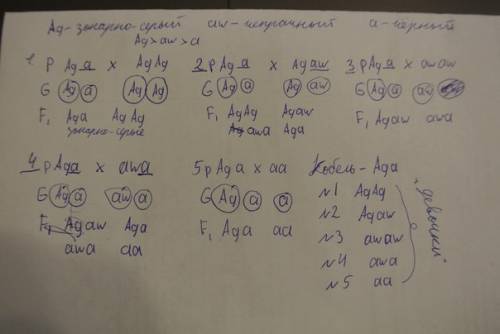 Ag - зонарно-серый aw - чепрачный a - чёрный
Ag > aw > a
1 P Ag a x Ag Ag
G Ag a Ag Ag
F1 Ag a Ag Ag
зонарно-серые
2 P Ag a x Ag aw
G Ag a Ag aw
F1 Ag Ag Ag aw
aw a Ag a
3 P Ag a x aw aw
G Ag a aw
F1 Ag aw aw a
4 P Ag a x aw a
G Ag a aw a
F1 Ag aw Ag a
aw a a a
5 P Ag a x a a
G Ag a a
F1 Ag a a a
Кобель - Ag a
№1 Ag Ag
№2 Ag aw
№3 aw aw
№4 aw a
№5 a a
"девочки"